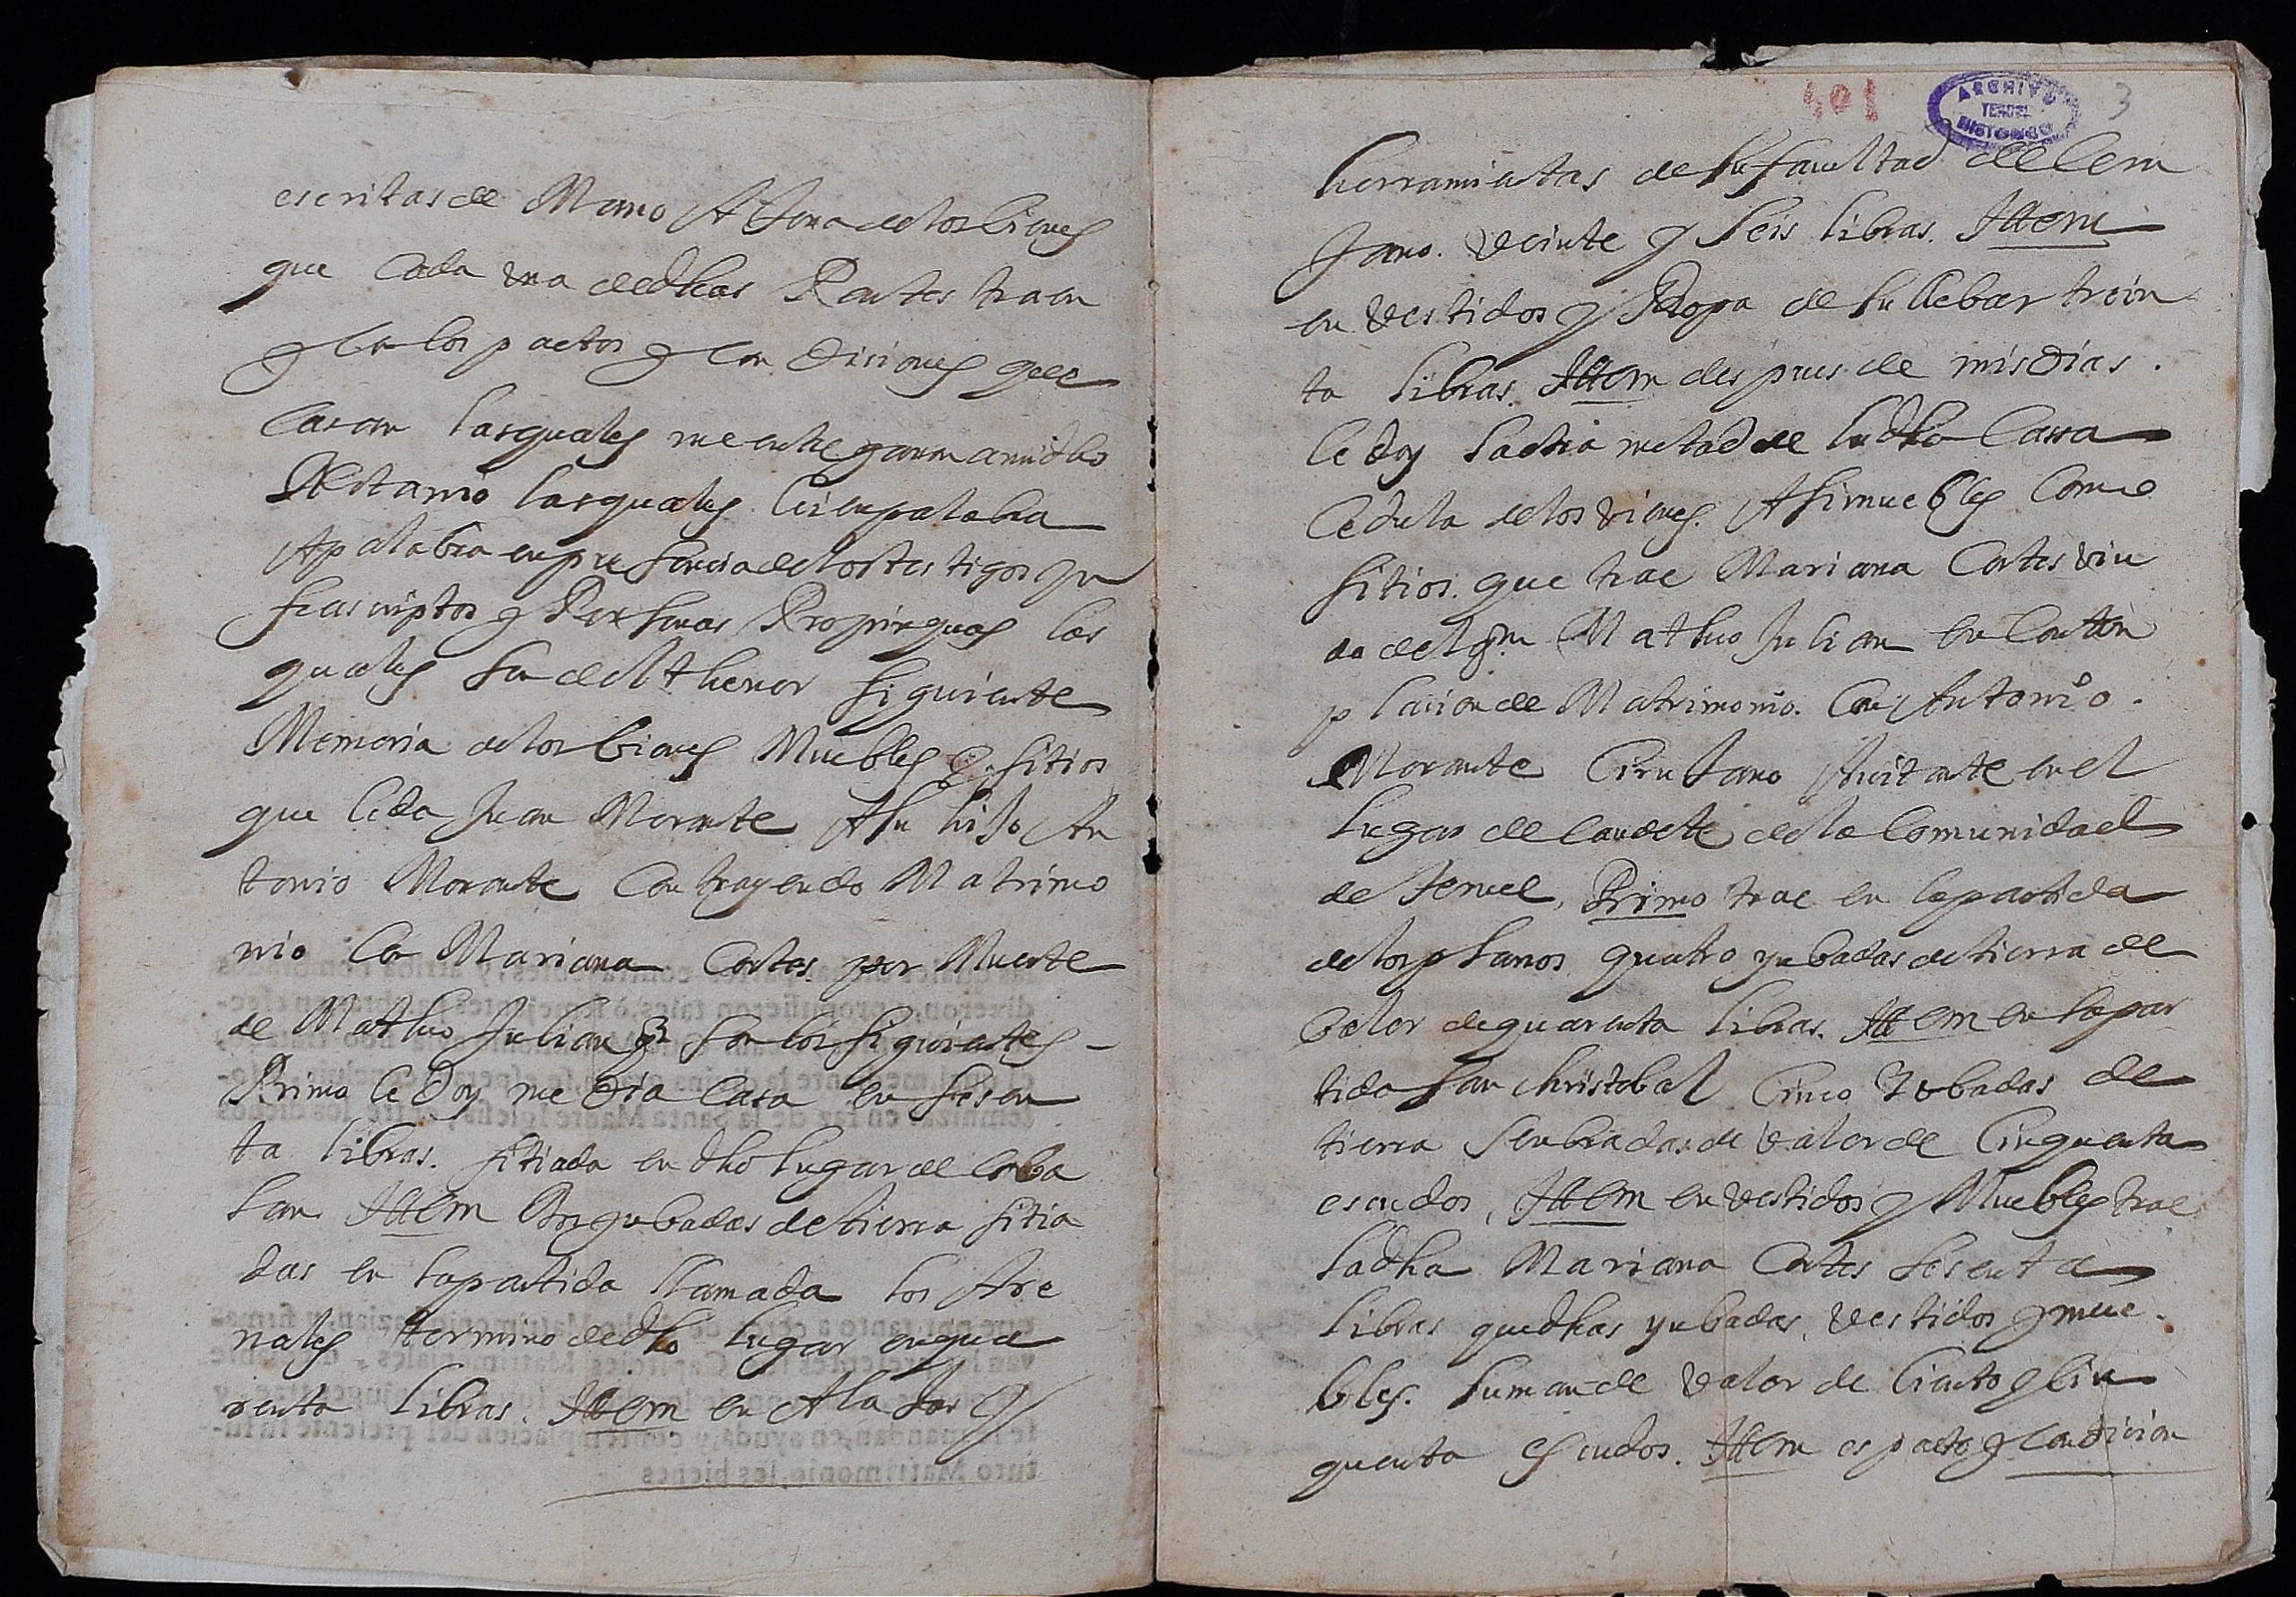 escritas de Mano A Jona de los bienes
que Cada una de dhas Partes traen
y Con los pactos y Con diciones que
Casan las quales me entregaron a mi dho
Notario las quales lei en palabra
A palabra en pre sencia de los tes tigos in
frascriptos y Per sonas Propinquas las
quales son del thenor siguiente
Memoria de los bienes Muebles y sitios
que le da Juan Morante A su hijo An
tonio Morante Con trayendo Matrimo
nio Con Mariana Cortes por Muerte
de Matheo Julian y son los siguientes –
Primo le doy me dia Casa en sesen
ta libras. sitiada en dho lugar de Cuba
Item Dos yubadas de tierra sitia
das en la partida llamada los Are
nales termino de dho lugar en qua
renta libras. Item en
401
3
ARCHIVO
TERUEL
HISTORICO
herramientas de su facultad de Ceru
Jano. veinte y seis libras. Item
en vestidos y Ropa de su llebar trein
ta libras. Item des pues de mis dias.
le doy la otra metad de la dha Cassa
Cedula de los vienes. A si muebles Como
sitios. que trae Mariana Cortes viu
da del qm Matheo Julian en Contem
placion de Matrimonio. Con Antonio.
Morante Ciru Jano Avitante en el
lugar de Caudete de la Comunidad
de Teruel, Primo trae en la partida
de los planos quatro yubadas de tierra de
valor de quarenta libras. Item en la par
tida San Christobal Cinco Yubadas de
tierra senbradas de valor de Cinquenta
escudos, Item en vestidos y Muebles trae
la dha Mariana Cortes sesenta
libras que dhas yubadas, vestidos y mue.
bles. suman de valor de Ciento y Cin
quenta escudos. Item es pacto y Condicion